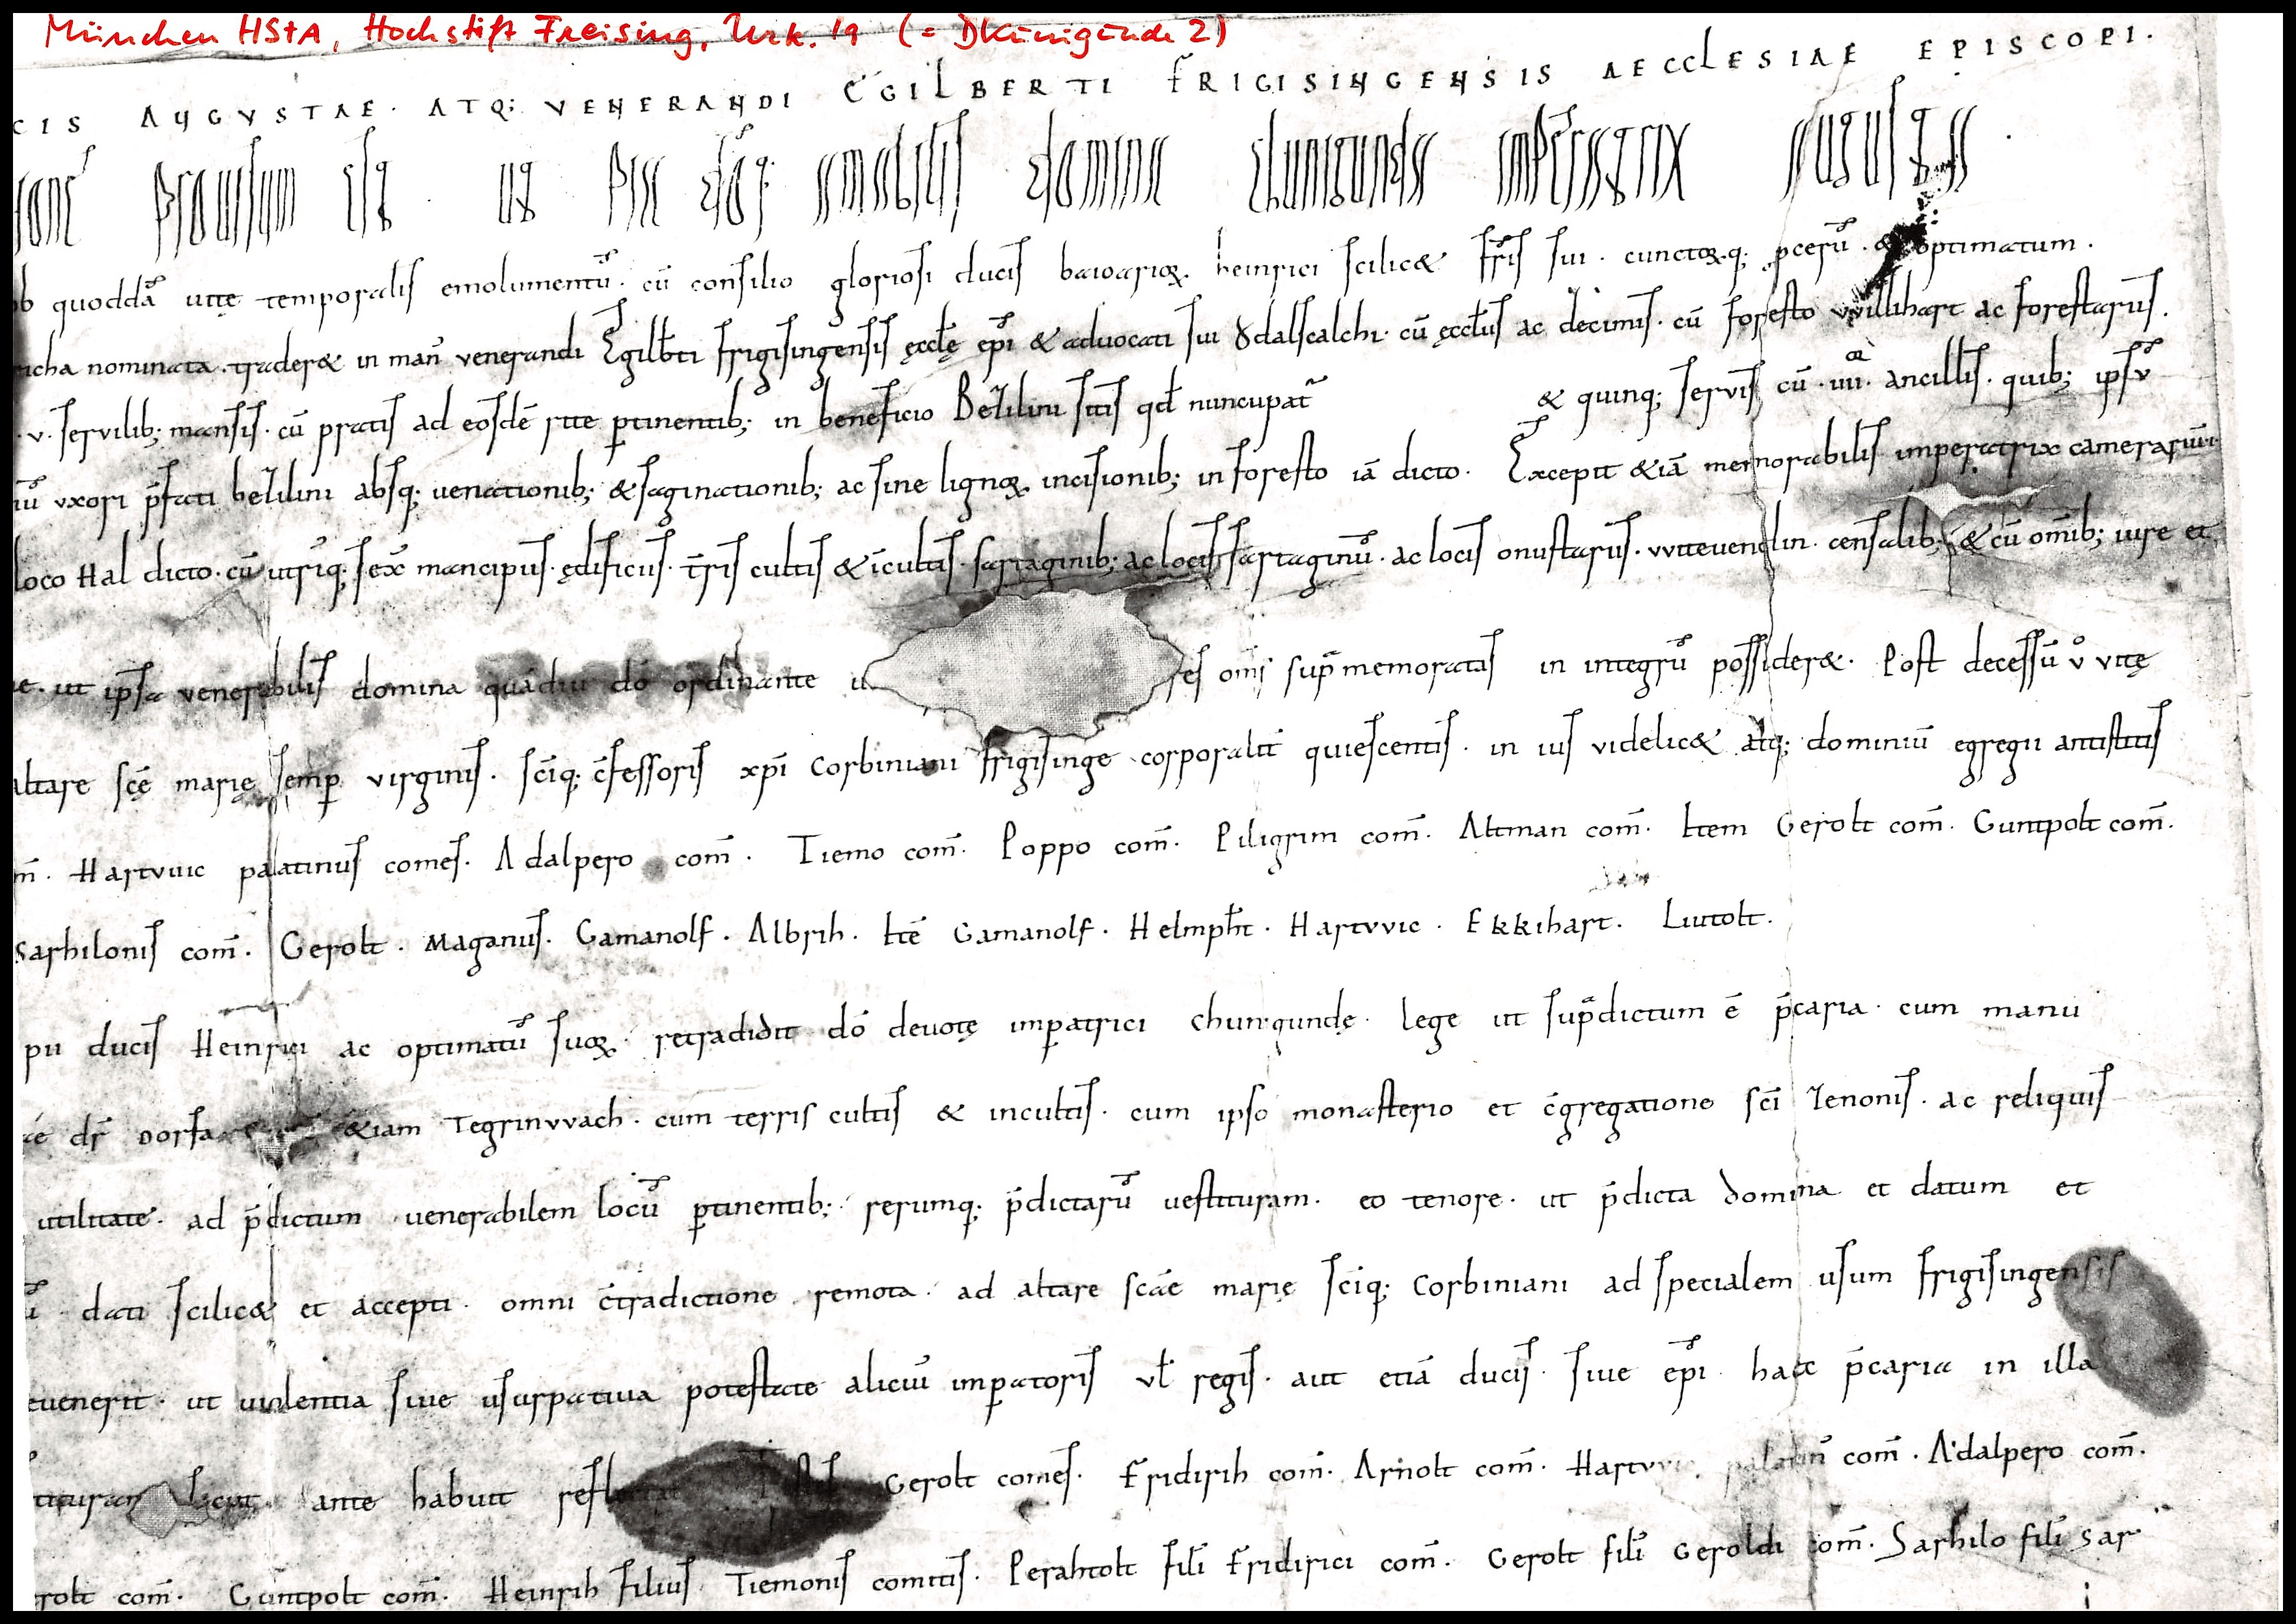 München HStA, Hochstift Freising, Urk. 19 (= DKunigunde 2)
CIS AUGUSTAE · ATQ; VENERANDI EGILBERTI FRIGISINGENSIS AECCLESIAE EPISCOPI ·
prouisum est · ut pia dōq; amabilis domina chunigunda imperatrix augusta ·
ob quoddā uitę temporalis emolumentū · cū consilio gloriosi ducis baioarioꝝ · heinrici scilic& fr̄is sui · cunctoꝝq; pcerū · & optimatum ·
nominata · trader& in man̄ venerandi Egilb̄ti frigisingensis ęccl̄ę ep̄i & aduocati sui Ödalscalchi · cū ęccl̄iis ac decimis · cū foresto vvillihart ac forestariis ·
· v · seruilib; mansis · cū pratis ad eosdē rite ꝑtinentib; in beneficio Bezilini sitis qđ nuncupat̄ & quinq; seruis cū · iiii · ancillis · quib; ips̄ v
iū vxori p̄fati bezilini absq; uenationib; & saginationib; ac sine lignoꝝ incisionib; in foresto iā dicto · Excepit &iā memorabilis imperatrix camerarium
loco Hal dicto · cū utriq; sex̄ mancipiis · ędificiis · t̄ris cultis & īcultis · sartaginib; ac locis sartaginū · ac locis onustariis · vvitevendin · censalib; & cū om̄ib; iure et
ut ipsa venerabilis domina quādiu dō ordinante res om̄s sup̄memoratas in integrū possider& · Post decessū v̊ vitę
altare sc̄ę marię semꝑ virginis · sc̄iq; c̄fessoris xp̄i corbiniani frigisinge corporalit̄ quiescentis · in ius videlic& atq; dominiū egregii antistitis
m̄ · Hartvuic palatinus comes · Adalpero com̄ · Tiemo com̄ · Poppo com̄ · Piligrim com̄ · Altman com̄ · Item Gerolt com̄ · Guntpolt com̄ ·
Sarhilonis com̄ · Gerolt · Maganus · Gamanolf · Albrih · Itē Gamanolf · Helmph̄t · Hartvvic · Ekkihart · Liutolt ·
pii ducis Heinrici ac optimatū suoꝝ · retradidit dō deuotę imꝑatrici chunigundę · lege ut sup̄dictum ē p̄caria · cum manu
dr̄ &iam Tegrinvvach · cum terris cultis & incultis · cum ipso monasterio et c̄gregatione sc̄i Zenonis · ac reliquis
utilitate · ad p̄dictum uenerabilem locū ꝑtinentib; · rerumq; p̄dictarū uestituram · eo tenore · ut p̄dicta domina et datum et
ū · dati scilic& et accepti · omni c̄tradictione remota · ad altare sc̄ae marię sc̄iq; corbiniani ad specialem usum frigisingensis
euenerit · ut uiolentia siue usurpatiua potestate alicui imꝑatoris vl̄ regis · aut etiā ducis · siue ep̄i · haec p̄caria in illa
ante habuit Gerolt comes · Fridirih com̄ · Arnolt com̄ · Hartvvic palatin̄ com̄ · Adalpero com̄ ·
rolt com̄ · Guntpolt com̄ · Heinrih filius Tiemonis comitis · Perahtolt filī Fridirici com̄ · Gerolt filī Geroldi com̄ · Sarhilo filī Sar